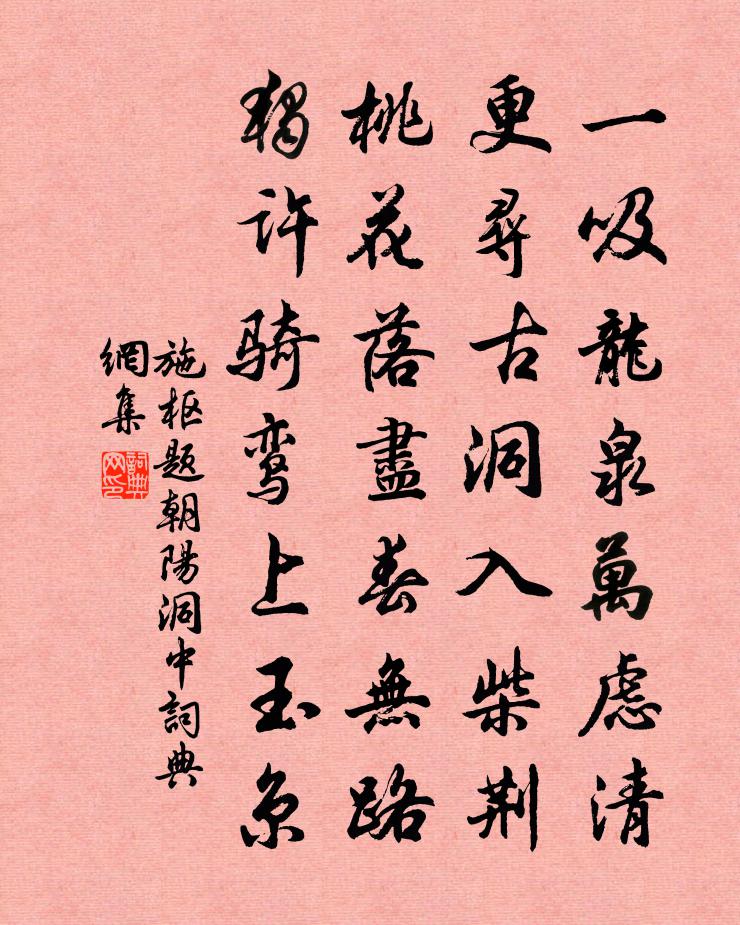 一吸龍泉萬慮清
更尋古洞入柴荆
桃花落盡春無路
獨许骑鸾上玉京
施枢题朝陽洞中詞典
網集
詞典
网印